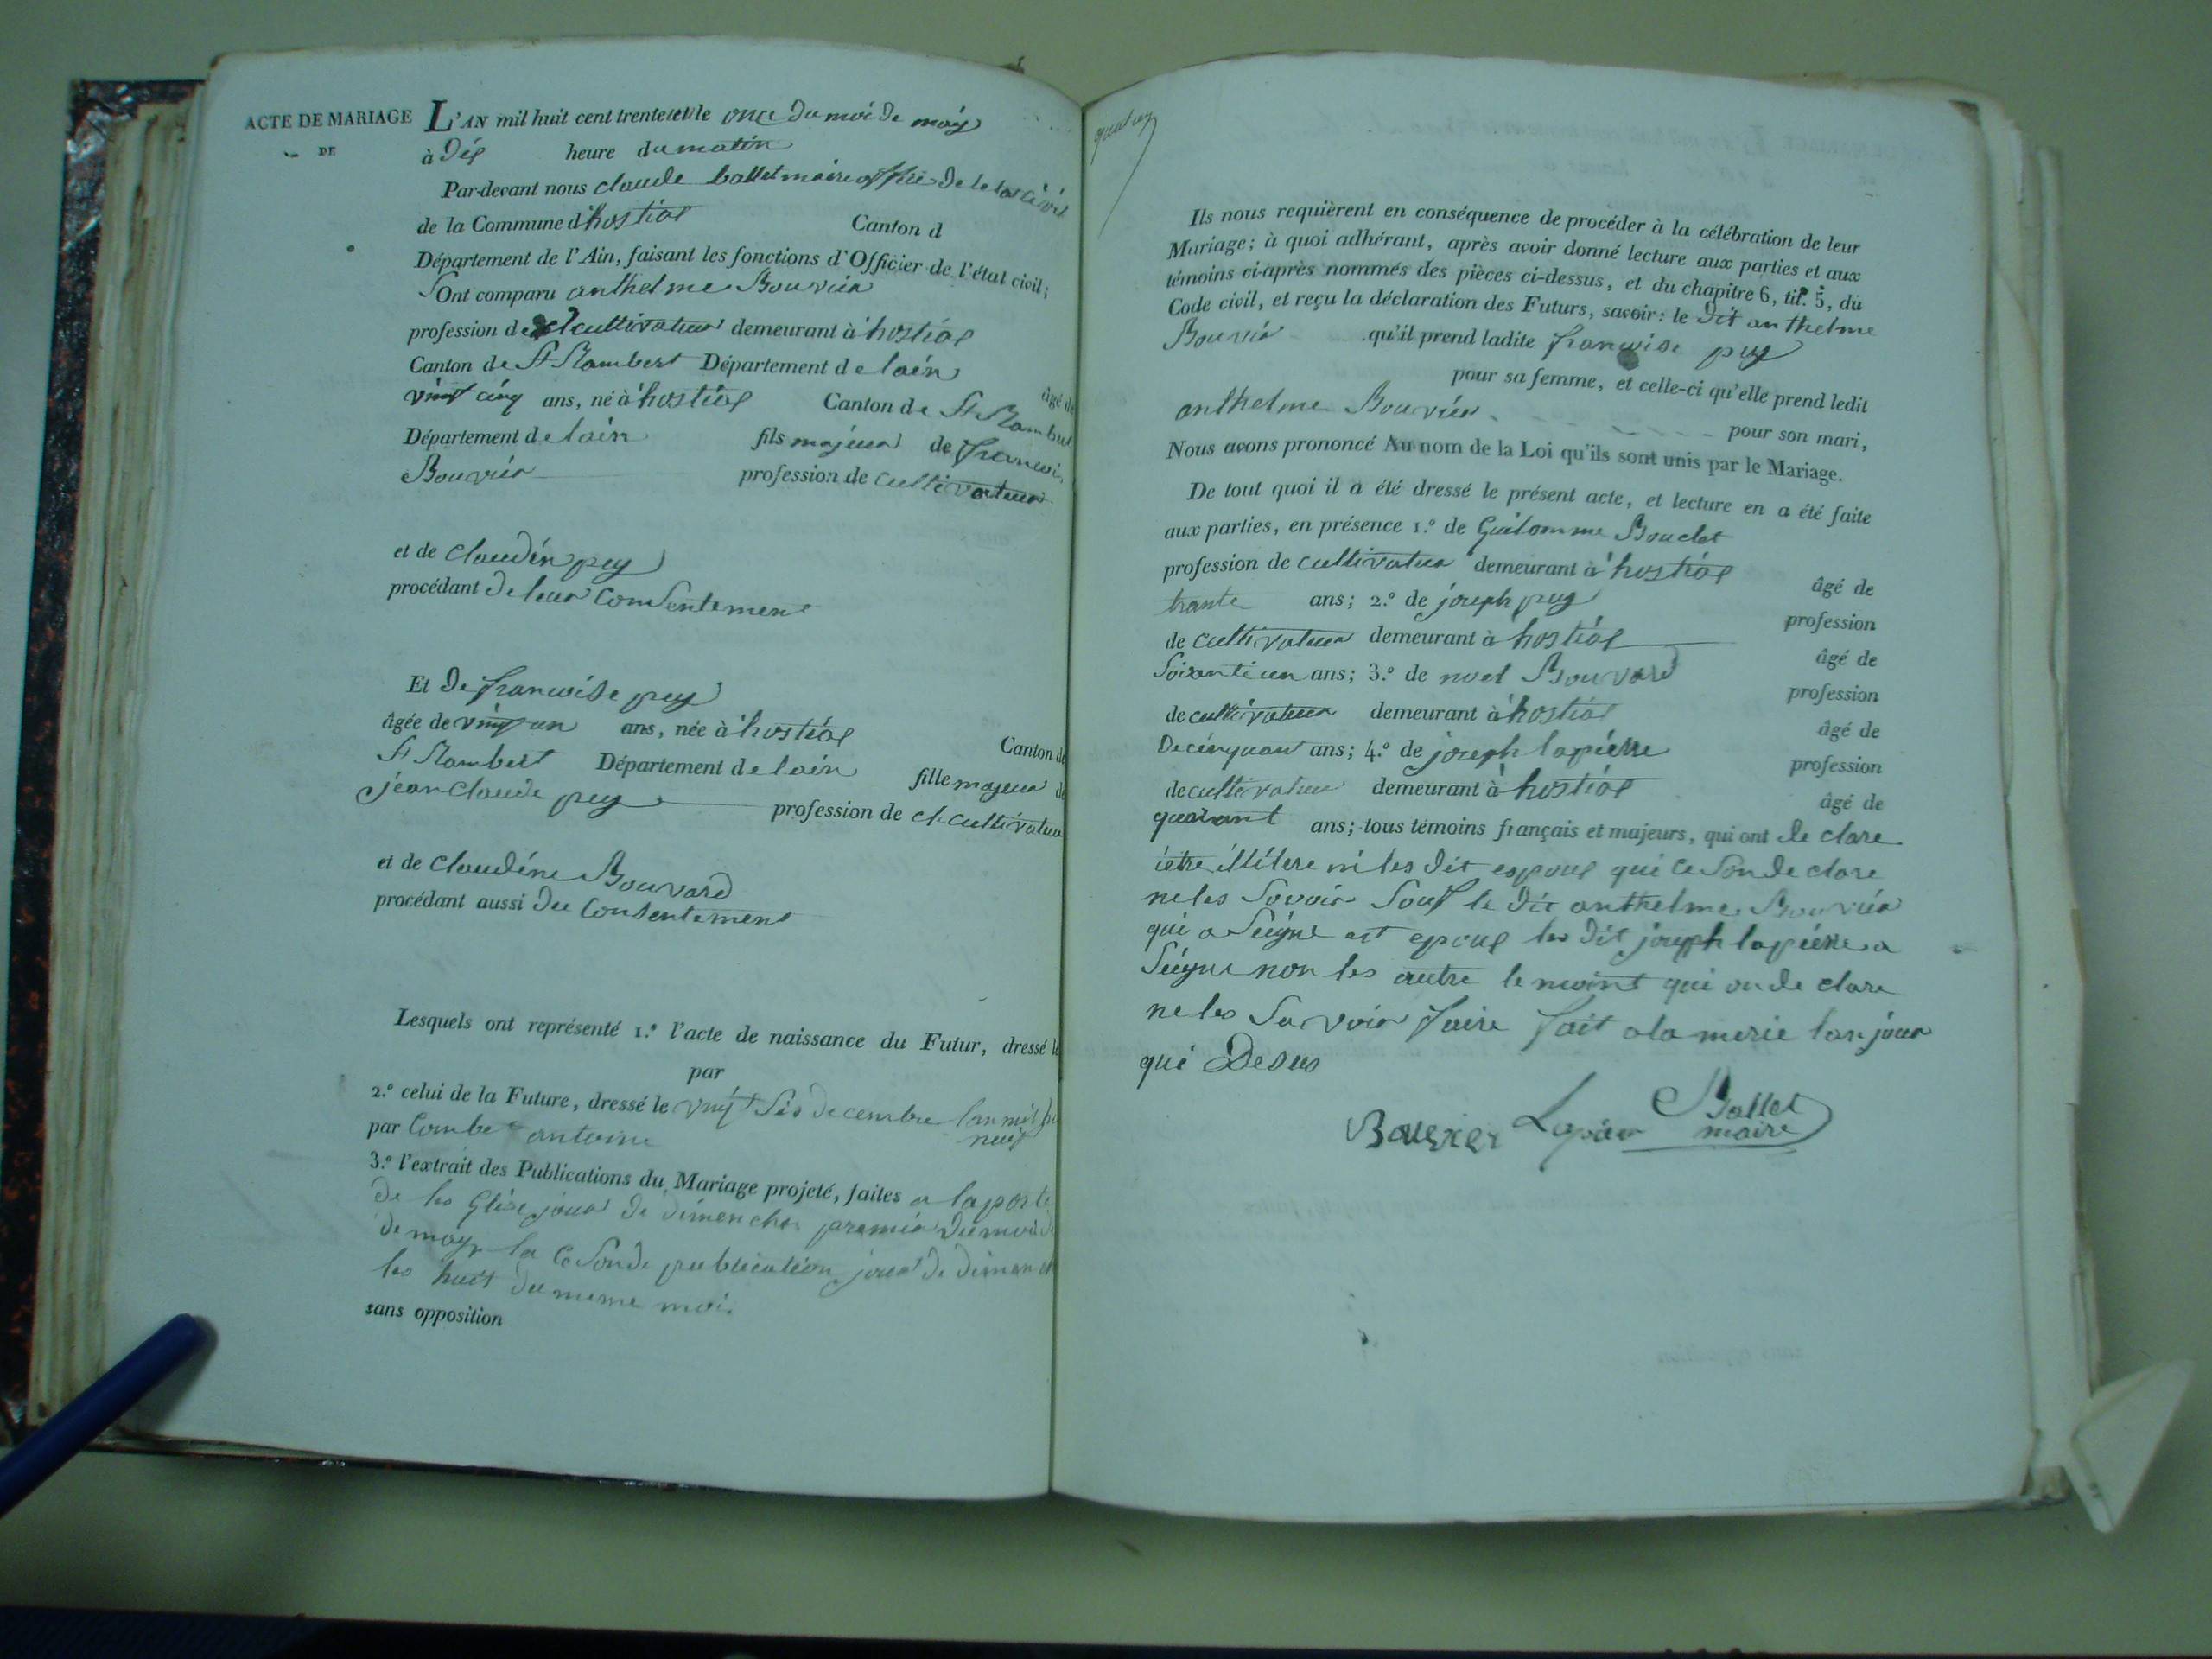 ACTE DE MARIAGE
DE
L'AN mil huit cent trente le once du moi de may
à Dix heure du matin
Par-devant nous claude ballet maire de civil
de la Commune d'hostiae Canton d
Département de l'Ain, faisant les fonctions d'Officier de l'état civil;
Ont comparu anthelme Bouvier
profession de cultivateur demeurant à hostiae
Canton de St Rambert Département de lain âgé de
vint cinq ans, né à hostiae Canton de St Rambert
Département de lain fils majeur de
Bouvier profession de cultivateur
et de claudin puy
procédant de leur Consentement
Et de francoise puy
âgée de vingt un ans, née à hostiae Canton de
St Rambert Département de lain fille majeur de
jean Claude puy profession de cultivateur
et de claudine Bouvard
procédant aussi du Consentement
Lesquels ont représenté 1.º l'acte de naissance du Futur, dressé le
par
2.º celui de la Future, dressé le vingt sis decembre lan mil
neuf
par Combe antoine
3.º l'extrait des Publications du Mariage projeté, faites a la porte
de les Glise jour de dimenche premier du moi
de may la Ceconde publication jour de dimench
les huit du meme moi
sans opposition
Ils nous requièrent en conséquence de procéder à la célébration de leur
Mariage; à quoi adhérant, après avoir donné lecture aux parties et aux
témoins ci-après nommés des pièces ci-dessus, et du chapitre 6, tit. 5, du
Code civil, et reçu la déclaration des Futurs, savoir: le dit anthelme
Bouvier qu'il prend ladite francoise puy
pour sa femme, et celle-ci qu'elle prend ledit
anthelme Bouvier pour son mari,
Nous avons prononcé Au nom de la Loi qu'ils sont unis par le Mariage.
De tout quoi il a été dressé le présent acte, et lecture en a été faite
aux parties, en présence 1.º de Guilomme Bouclet
profession de cultivateur demeurant à hostiae âgé de
trante ans; 2.º de joseph puy profession
de cultivateur demeurant à hostiae âgé de
Soisante un ans; 3.º de noel Bouvard profession
de cultivateur demeurant à hostiae âgé de
De cinquant ans; 4.º de joseph lapierre profession
de cultivateur demeurant à hostiae âgé de
quarant ans; tous témoins français et majeurs, qui ont de clare
ietre illitere ni les dit espoux qui ce son de clare
ne les Savoir Souf le dit anthelme Bouvier
qui a Seigne est epoux les dit joseph lapierre a
Seigne non les autre temoint qui on de clare
ne les Savoir faire fait a la merie lan jour
que Desus
Bouvier Lapier Ballet
maire